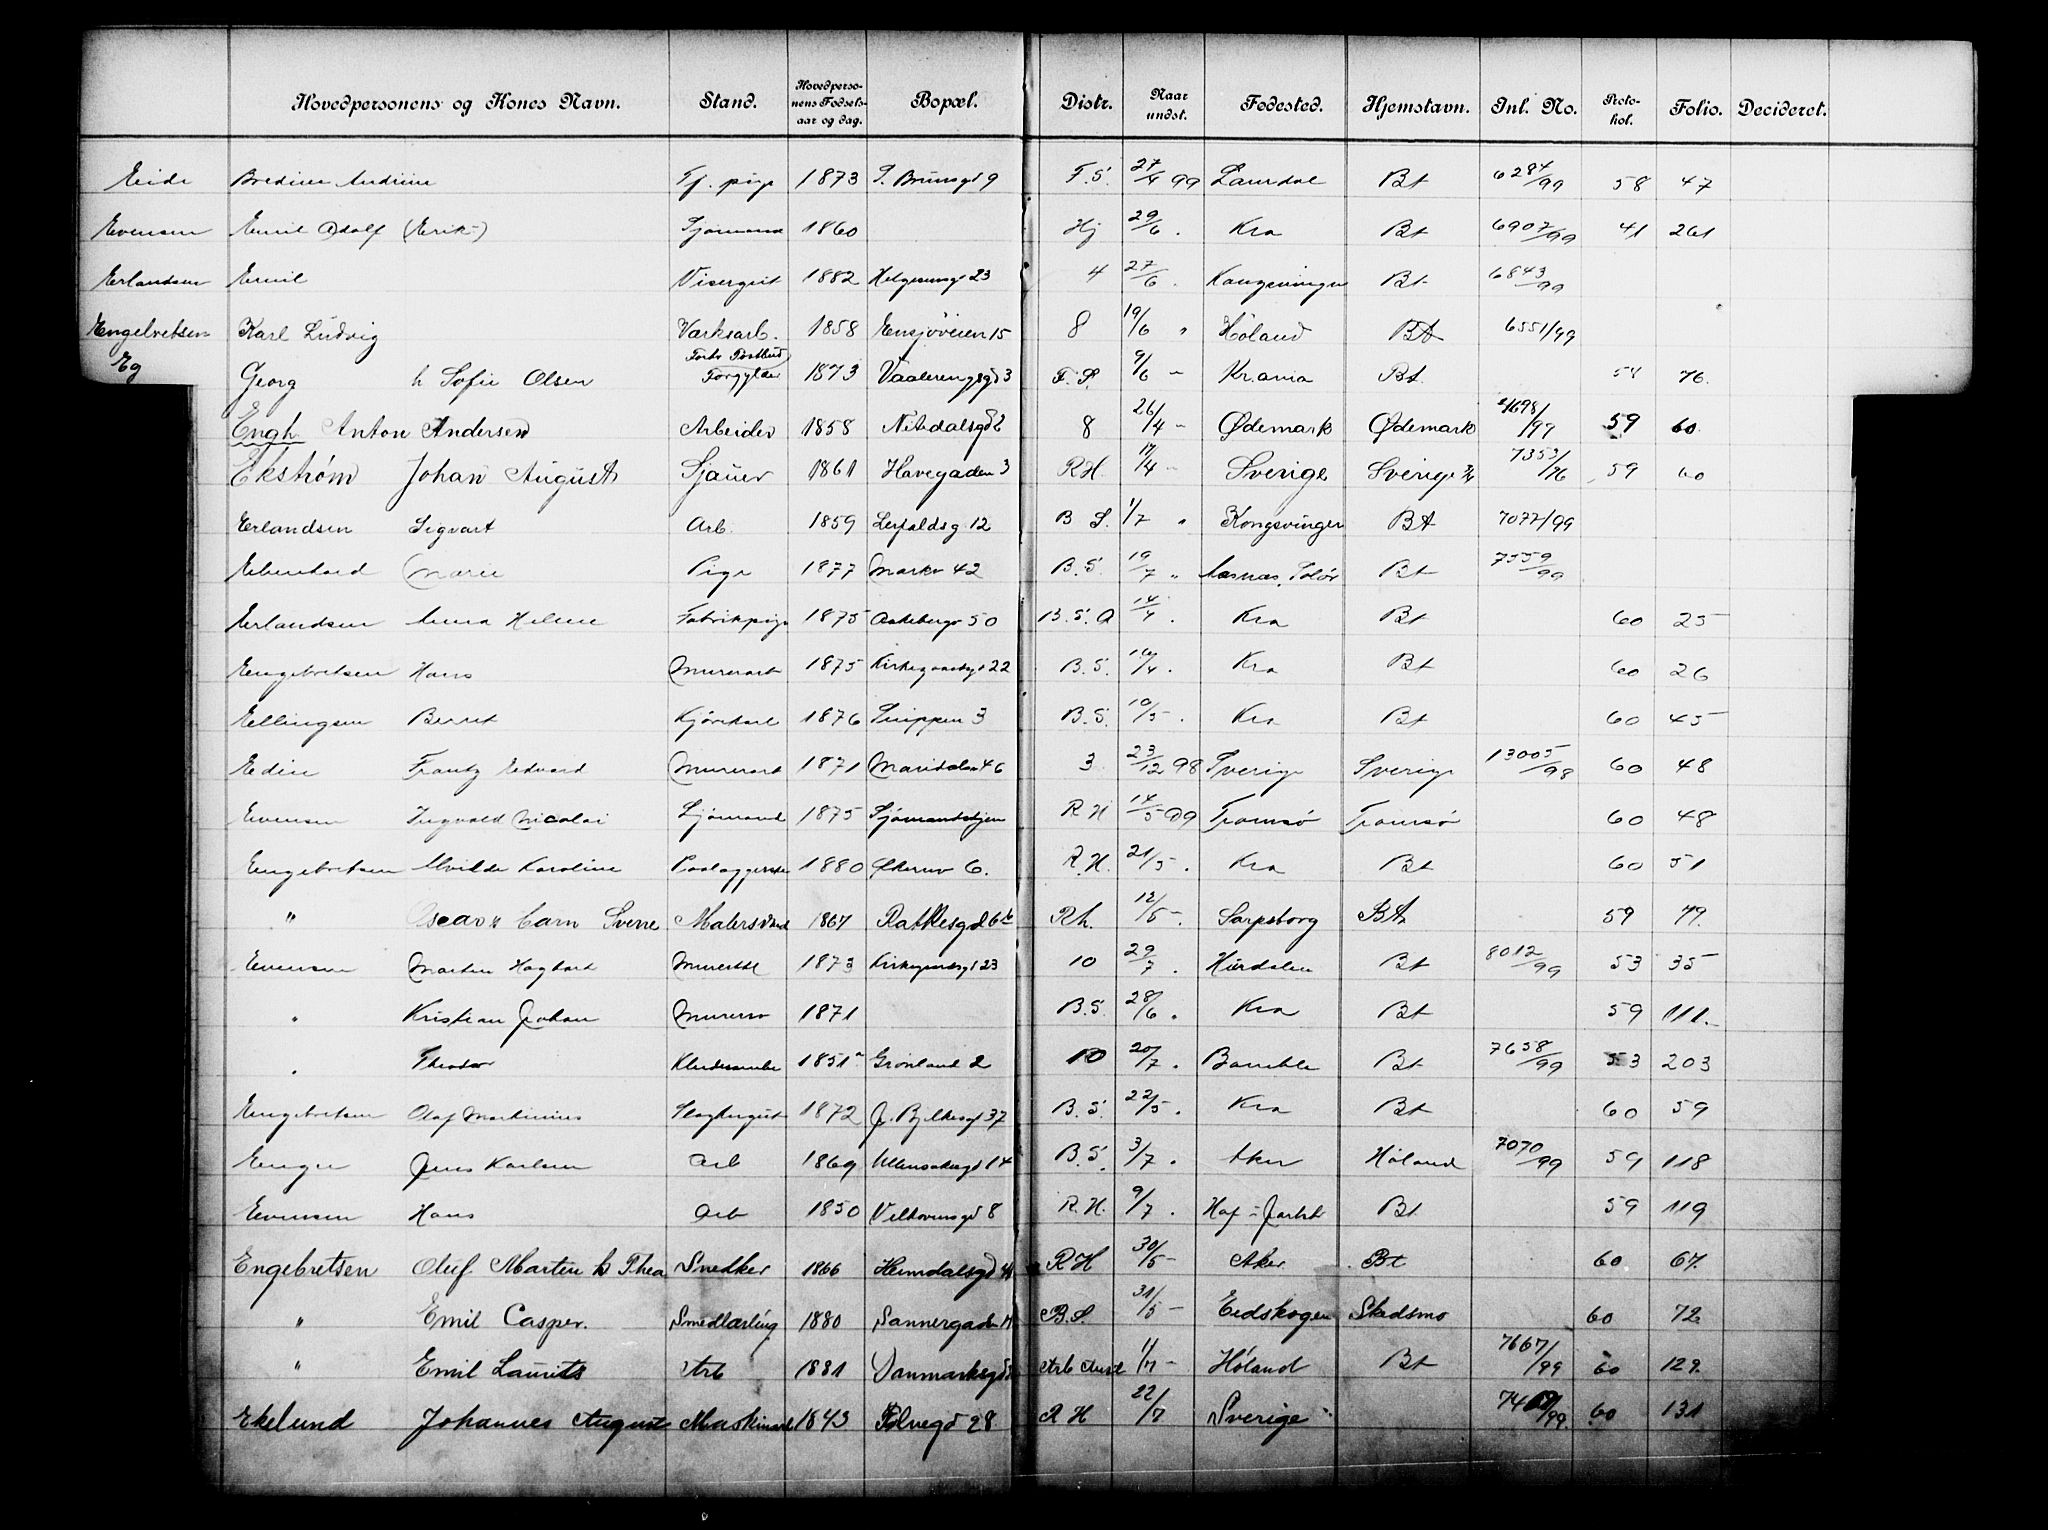 Hovedpersonens og Kones Navn. Stand. Hovedperso-nens Fødsels-aar og dag. Bopæl. Distr. Naar undst. Fødested. Hjemstavn. Inl. No. Proto-kol. Folio. Decideret.
Eide Bredine Andrine Tj. pige 1873 T. Brunsgd 9 F.S. 27/4 99 Bt 6284/99 58 47
Evensen Emil Adolf (Erik-) Sjømand 1860 Hj 29/6 . Kra Bt 6907/99 41 261
Erlandsen Emil Visergut 1882 Helgesensgt 23 4 27/6 . Kongsvinger Bt 6843/99
Engebretsen Karl Ludvig Værksarb. 1858 Ensjøveien 15 8 19/6 " Høland Bt 6551/99
Eg Georg h Sofie Olsen Forgylder 1873 Vaalerenggd 3 F.S. 9/6 - Krania Bt. 54 76.
Engh Anton Andersen Arbeider 1858 Nitedalsgd 2 8 26/4 - Ødemark Ødemark 4698/99 59 60.
Ekstrøm Johan August Sjauer 1861 Havegaden 3 R.H. 17/4 - Sverige Sverige 7353/76 59 60
Erlandsen Sigvart Arb. 1859 Leirfaldsg 12 B S. 1/7 " Kongsvinger Bt 7077/99
Marie Pige 1877 Markv 42 B.S. 19/7 " Aasnas, Solør Bt 7559/99
Erlandsen Anna Helene Fabrikpige 1875 Akebergv 50 B.S. A 14/4 . Kra Bt 60 25
Engebretsen Hans Murerarb 1875 Kirkegaardsgt 22 B.S. 16/4 . Kra Bt 60 26
Ellingsen Berret Kjørekarl 1876 Snippen 3 B.S. 10/5 . Kra Bt 60 45
Edin Frantz Edvard Murerarb 1871 Maridalsv 46 3 23/12 98 Sverige Sverige 13005/98 60 48
Evensen Ingvald Nicolai Sjømand 1875 Sjømandshjem R H 14/5 99 Tromsø Tromsø 60 48
Engebretsen Alvilde Karoline Paalæggerske 1880 Økernv 6. R.H. 21/5 . Kra Bt 60 51
" Oscar Malersvend 1867 Ratkesgd 6 Rh. 12/5 . Sarpsborg Bt 59 79.
Evensen Martin Hagbart 1873 Kirkegaardsgt 23 10 29/7 . Hurdalen Bt 8012/99 53 35
" Kristian Johan Murersv 1871 B.S. 28/6 . Kra Bt 59 111.
" Theodor Kludesamler 1851 Grønland 2 10 20/7 . Bamble Bt 7658/99 53 203
Engebretsen Olaf Martinius Slagtergut 1872 J. Bjelkesgt 37 B.S. 22/5 . Kra Bt 60 59
Enger Jens Karlsen Arb 1869 Ullensakergt 14 B.S. 3/7 . Aker Høland 7070/99 59 118
Evensen Hans Arb 1850 8 R.H. 9/7 . Bt. 59 119
Engebretsen Oluf Martin h Thea Snedker 1866 Heimdalsgd R H 30/5 - Aker Bt 60 67.
" Emil Casper. Smedlærling 1880 Sannergaden B.S. 31/5 - Eidskogen Skedsmo 60 72
" Emil Laurits Arb 1881 Danmarksgd Arb Anst 1/7 - Høland Bt 7667/99 60 129.
Ekelund Johannes August Maskinarb 1843 Tolvegd 28 R H 22/7 Sverige 60 131